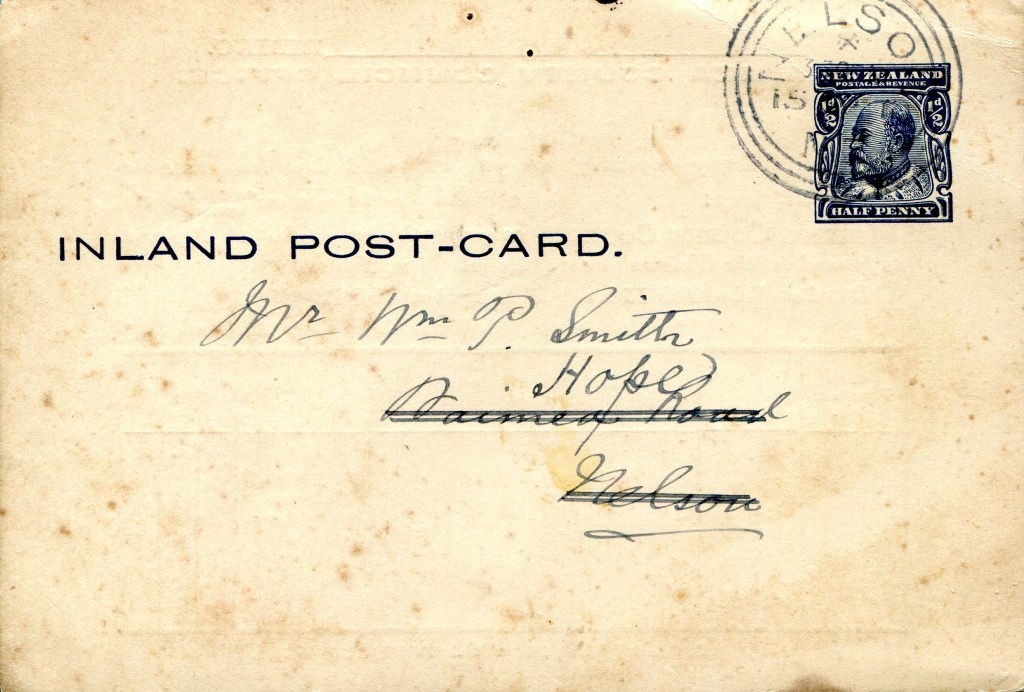 NELSO
15
NEW ZEALAND
POSTAGE & REVENUE
½d ½d
HALF PENNY
INLAND POST-CARD.
Mr Wm P. Smith
Hope
Waimea Road
Nelson